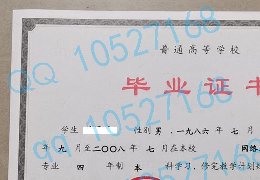 QQ 10527168
普通高等学校
毕业证书
学生 性别 男 ，一九八六 年 七 月
九 月至二〇〇八 年 七 月在本校 网络
专业 四 年制 本 科学习，修完教学计划
99 10527168